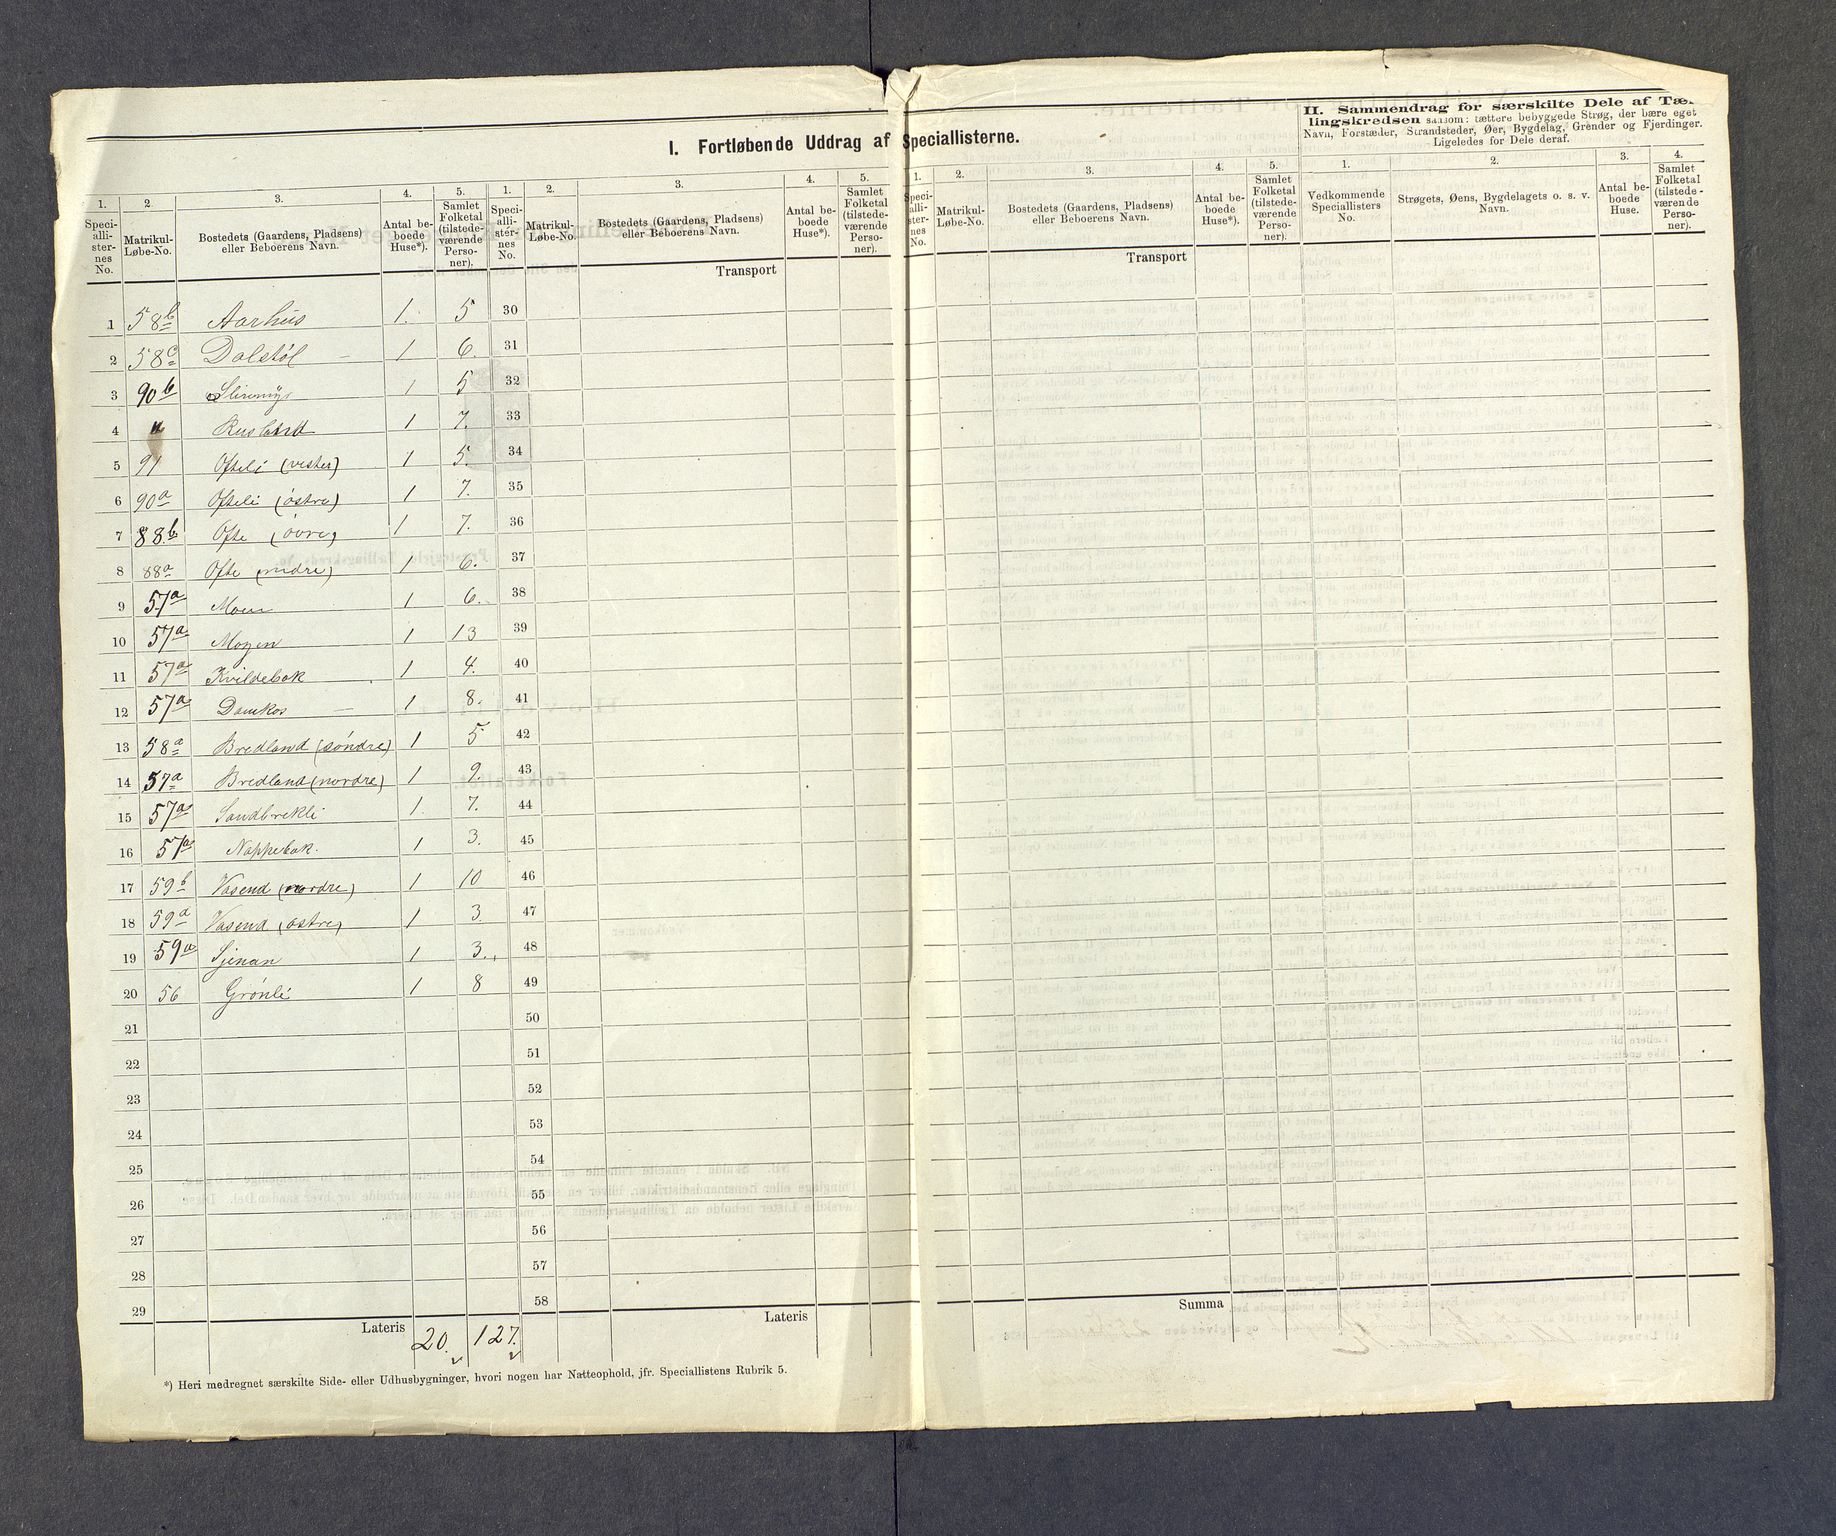 I. Fortløbende Uddrag af Speciallisterne.
II. Sammendrag for særskilte Dele af Tæl-
lingskredsen saasom: tættere bebyggede Strøg, der bære eget
Navn, Forstæder, Strandsteder, Øer, Bygdelag, Grender og Fjerdinger.
Ligeledes for Dele deraf.
1. 2. 3. 4. 5. 1. 2. 3. 4. 5. 1. 2. 3. 4. 5. 1. 2. 3. 4.
Speci-alli-ster-nes No. Matrikul-Løbe-No. Bostedets (Gaardens, Pladsens) eller Beboerens Navn. Antal be-boede Huse*). Samlet Folketal (tilstede-værende Perso-ner).
Speci-alli-ster-nes No. Matrikul-Løbe-No. Bostedets (Gaardens, Pladsens) eller Beboerens Navn. Antal be-boede Huse*). Samlet Folketal (tilstede-værende Perso-ner).
Speci-alli-ster-nes No. Matrikul-Løbe-No. Bostedets (Gaardens, Pladsens) eller Beboerens Navn. Antal be-boede Huse*). Samlet Folketal (tilstede-værende Perso-ner).
Vedkommende Speciallisters No. Strøgets, Øens, Bygdelagets o. s. v. Navn. Antal be-boede Huse. Samlet Folketal (tilstede-værende Perso-ner).
Transport Transport
1 58b Aarhus 1. 5 30
2 58c Dalstöl 1 6. 31
3 90b 1 5 32
4 " Rusland 1 7. 33
5 91 Ofteli (vestre) 1 5. 34
6 90a Ofteli (östre) 1 7. 35
7 88b Ofte (övre) 1 7. 36
8 88a Ofte (nidre) 1 6. 37
9 57a Moen 1 6. 38
10 57a Mogen 1 13 39
11 57a Kvildebak 1 4. 40
12 57a Damkos 1 8. 41
13 58a Bredland (söndre) 1 5 42
14 57a Bredland (nordre) 1 9. 43
15 57a Sandbrekli 1 7. 44
16 57a Nappebak. 1 3. 45
17 59b Vasend (nordre) 1 10 46
18 59a Vasend (östre) 1 3 47
19 59a Sjenan 1 3. 48
20 56 Grönli 1 8 49
21 50
22 51
23 52
24 53
25 54
26 55
27 56
28 57
29 58
Lateris 20. 127. Lateris Summa
*) Heri medregnet særskilte Side- eller Udhusbygninger, hvori nogen har Natteophold, jfr. Speciallistens Rubrik 5.